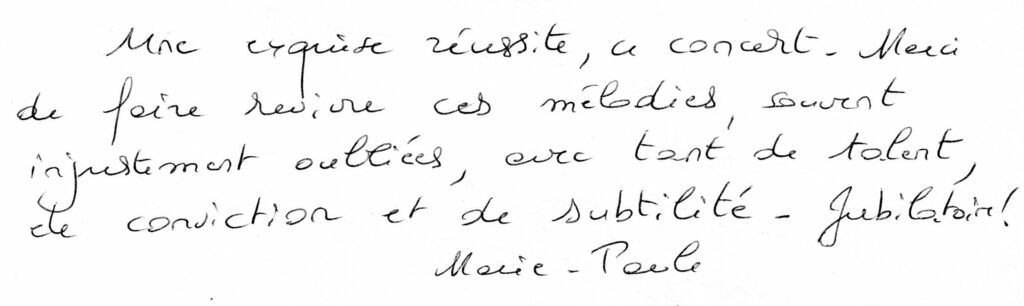 Une exquise réussite, ce concert - Merci
de faire revivre ces mélodies, souvent
injustement oubliées, avec tant de talent,
de conviction et de subtilité - Jubilatoire !
Marie-Paule